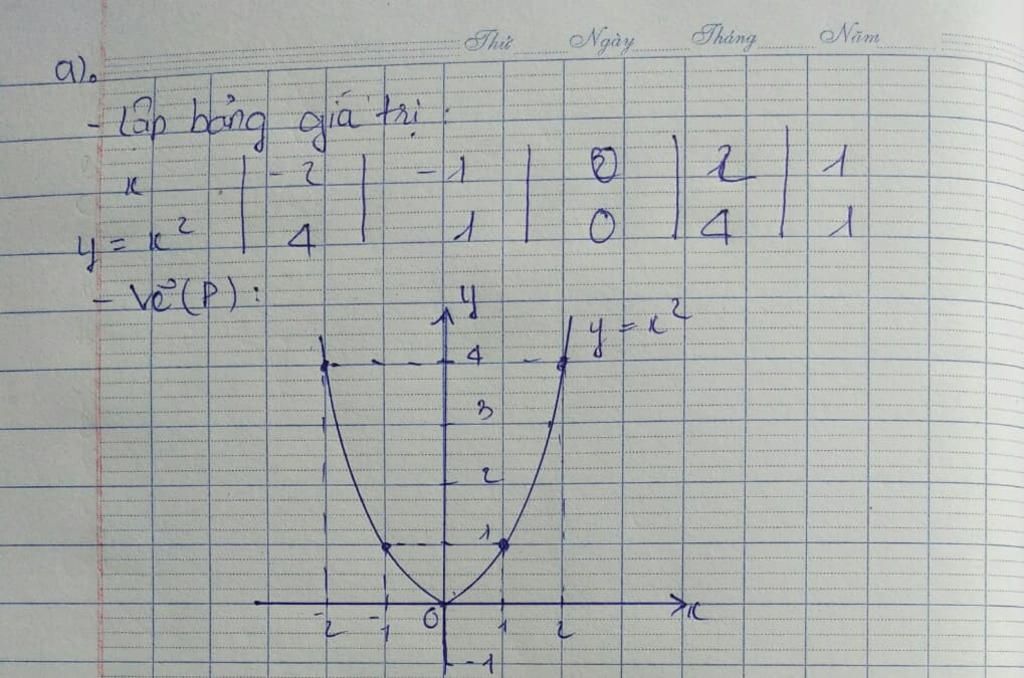 Thứ Ngày Tháng Năm
a).
- Lập bảng giá trị :
x | -2 | -1 | 0 | 2 | 1
y = x² | 4 | 1 | 0 | 4 | 1
- Vẽ (P) :
y
y = x²
4
3
2
1
-2 -1 0 1 2 x
-1